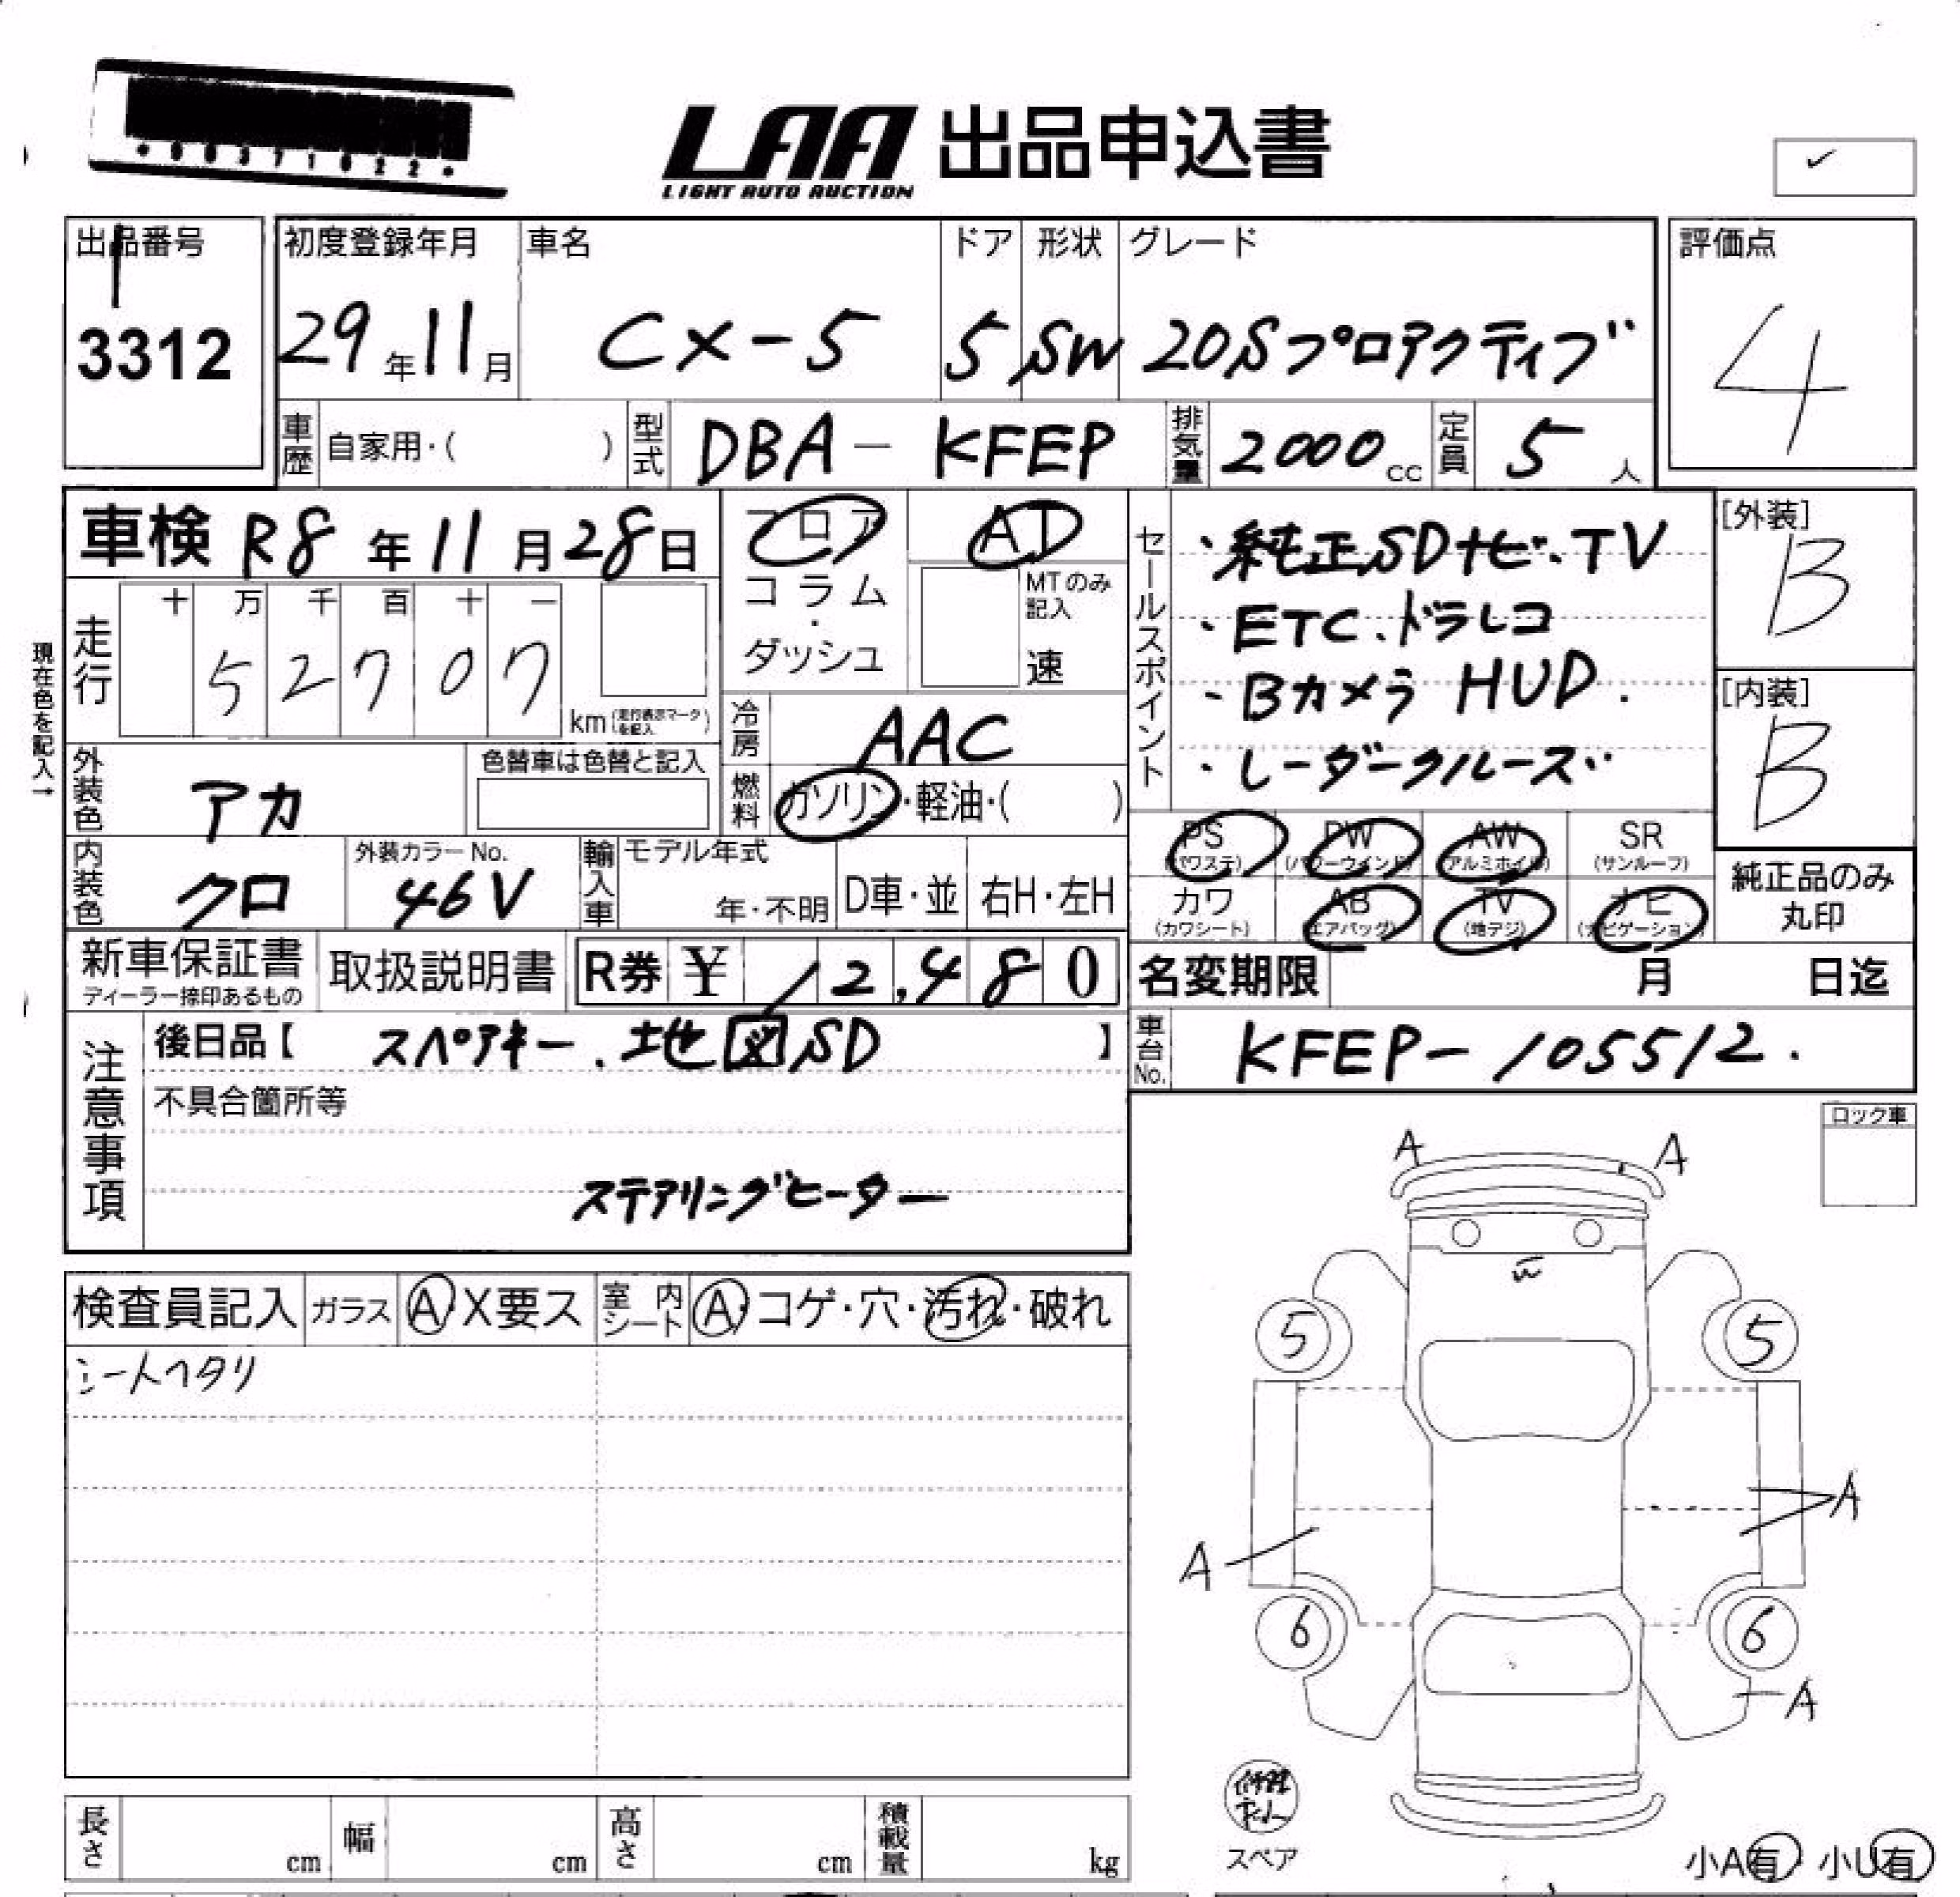 *00371022*
LAA 出品申込書
LIGHT AUTO AUCTION
✓
出品番号 初度登録年月 車名 ドア 形状 グレード 評価点
3312 29年11月 CX-5 5 SW 20Sプロアクティブ 4
車歴 自家用・( ) 型式 DBA-KFEP 排気量 2000cc 定員 5人
車検 R8年11月28日
フロア AT
コラム・ MTのみ記入
ダッシュ 速
セールスポイント
・純正SDナビ、TV
・ETC、ドラレコ
・Bカメラ HUD.
・レーダークルーズ
[外装]
B
[内装]
B
現在色を記入→
走行 十 万 千 百 十 一
52707
km (走行表示マークを記入)
冷房 AAC
外装色 アカ 色替車は色替と記入
燃料 ガソリン・軽油・( )
PS AW PW SR
(パワステ) (パワーウインド) (アルミホイル) (サンルーフ)
カワ AB TV ナビ
(カワシート) (エアバッグ) (地デジ) (ナビゲーション)
純正品のみ
丸印
内装色 クロ 外装カラーNo. 46V 輸入車 モデル年式 年・不明 D車・並 右H・左H
新車保証書 取扱説明書 R券 ¥ 12,480
ディーラー捺印あるもの
名変期限 月 日迄
注意事項
後日品【 スペアキー、地図SD 】
車台No. KFEP-105512.
不具合箇所等
ステアリングヒーター
ロック車
検査員記入 ガラス A X要ス 室内シート A・コゲ・穴・汚れ・破れ
シートヘタリ
A A
W
5 5
A
A
6 6
A
スペア
小A有・小U有
長さ cm 幅 cm 高さ cm 積載量 kg